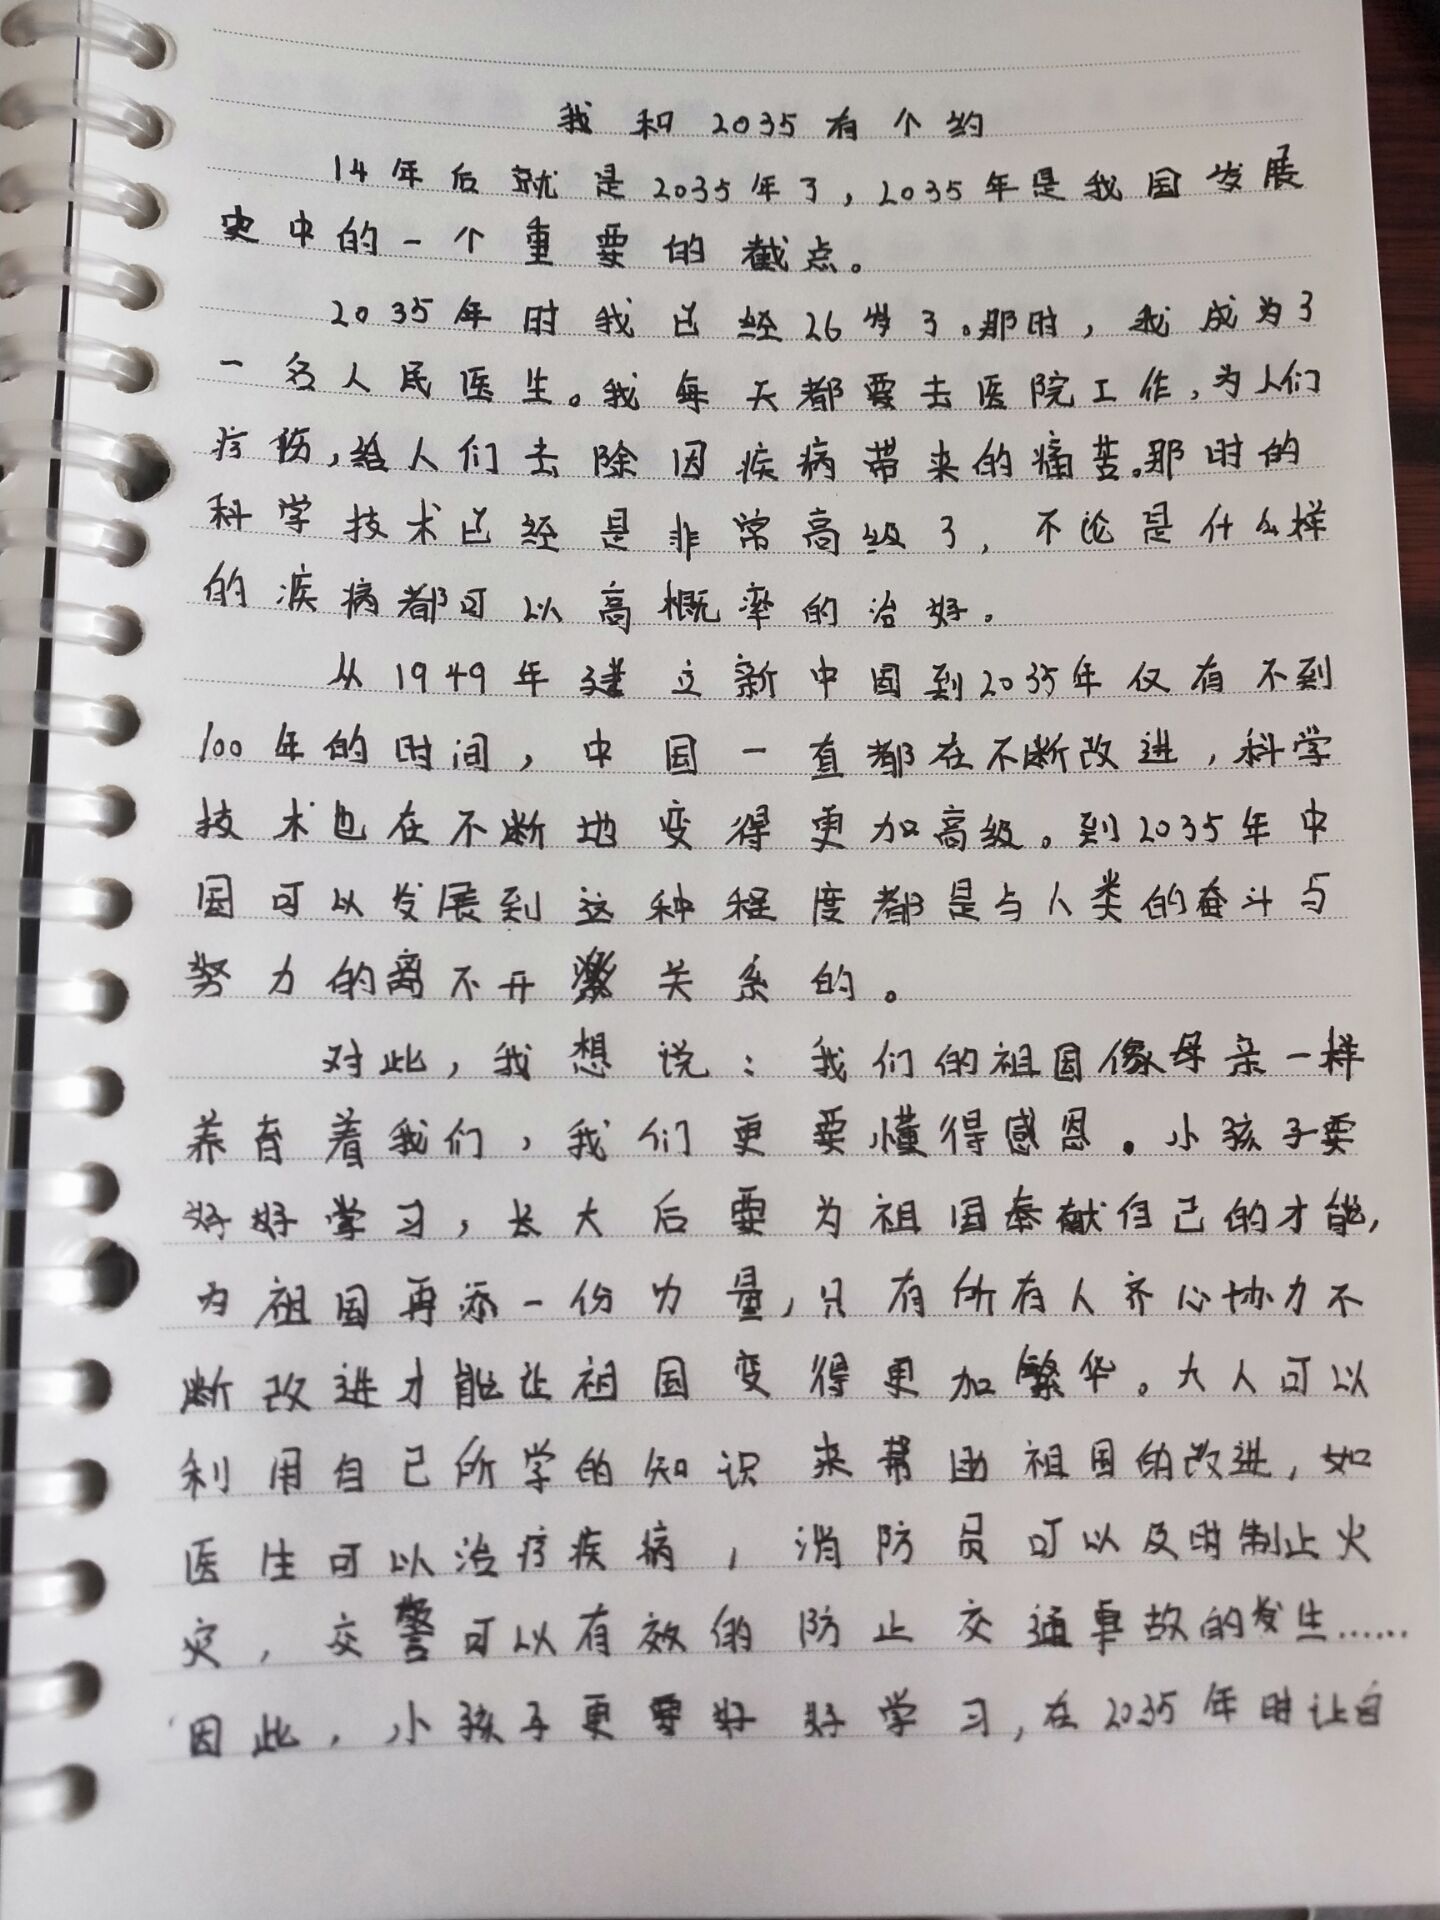 我和2035有个约
14年后就是2035年了,2035年是我国发展
史中的一个重要的截点。
2035年时我已经26岁了。那时,我成为了
一名人民医生。我每天都要去医院工作,为人们
疗伤,给人们去除因疾病带来的痛苦。那时的
科学技术已经是非常高级了,不论是什么样
的疾病都可以高概率的治好。
从1949年建立新中国到2035年仅有不到
100年的时间,中国一直都在不断改进,科学
技术也在不断地变得更加高级。到2035年中
国可以发展到这种程度都是与人类的奋斗与
努力的离不开关系的。
对此,我想说:我们的祖国像母亲一样
养育着我们,我们更要懂得感恩。小孩子要
好好学习,长大后要为祖国奉献自己的才能,
为祖国再添一份力量,只有所有人齐心协力不
断改进才能让祖国变得更加繁华。大人可以
利用自己所学的知识来帮助祖国的改进,如
医生可以治疗疾病,消防员可以及时制止火
灾,交警可以有效的防止交通事故的发生……
因此,小孩子更要好好学习,在2035年时让自